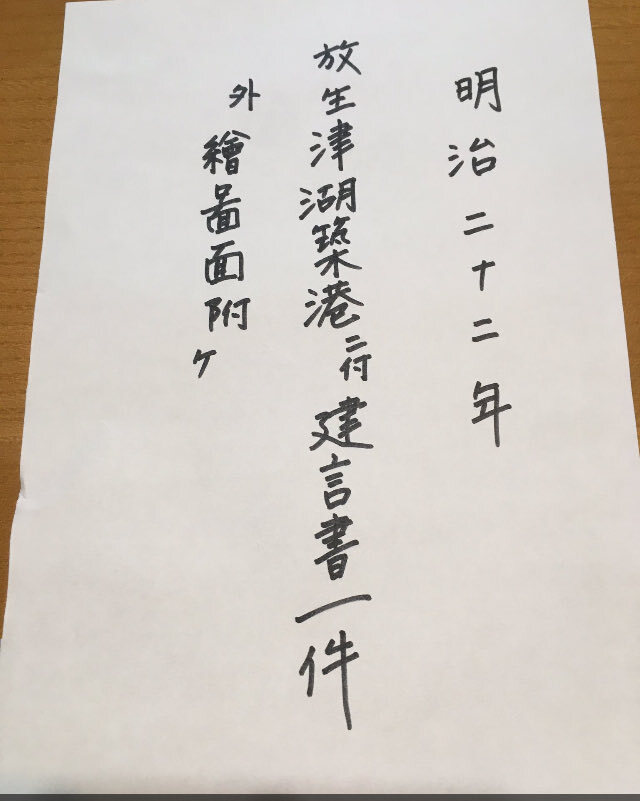 明治二十二年
放生津湖築港ニ付建言書一件
外繪畐面附ケ